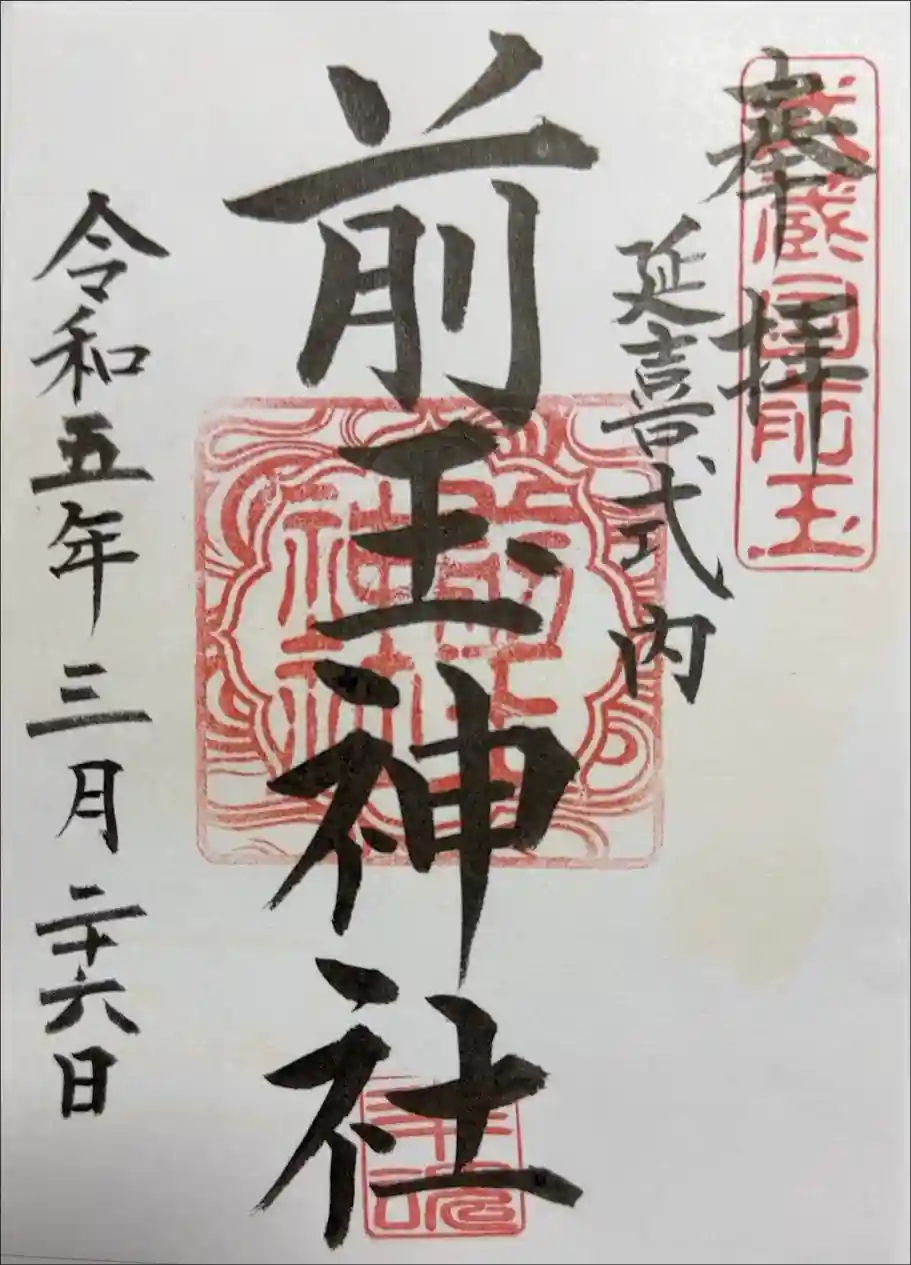 奉拝
武蔵国前玉
延喜式内
前玉神社
前玉
神社
幸魂
令和五年三月二十六日